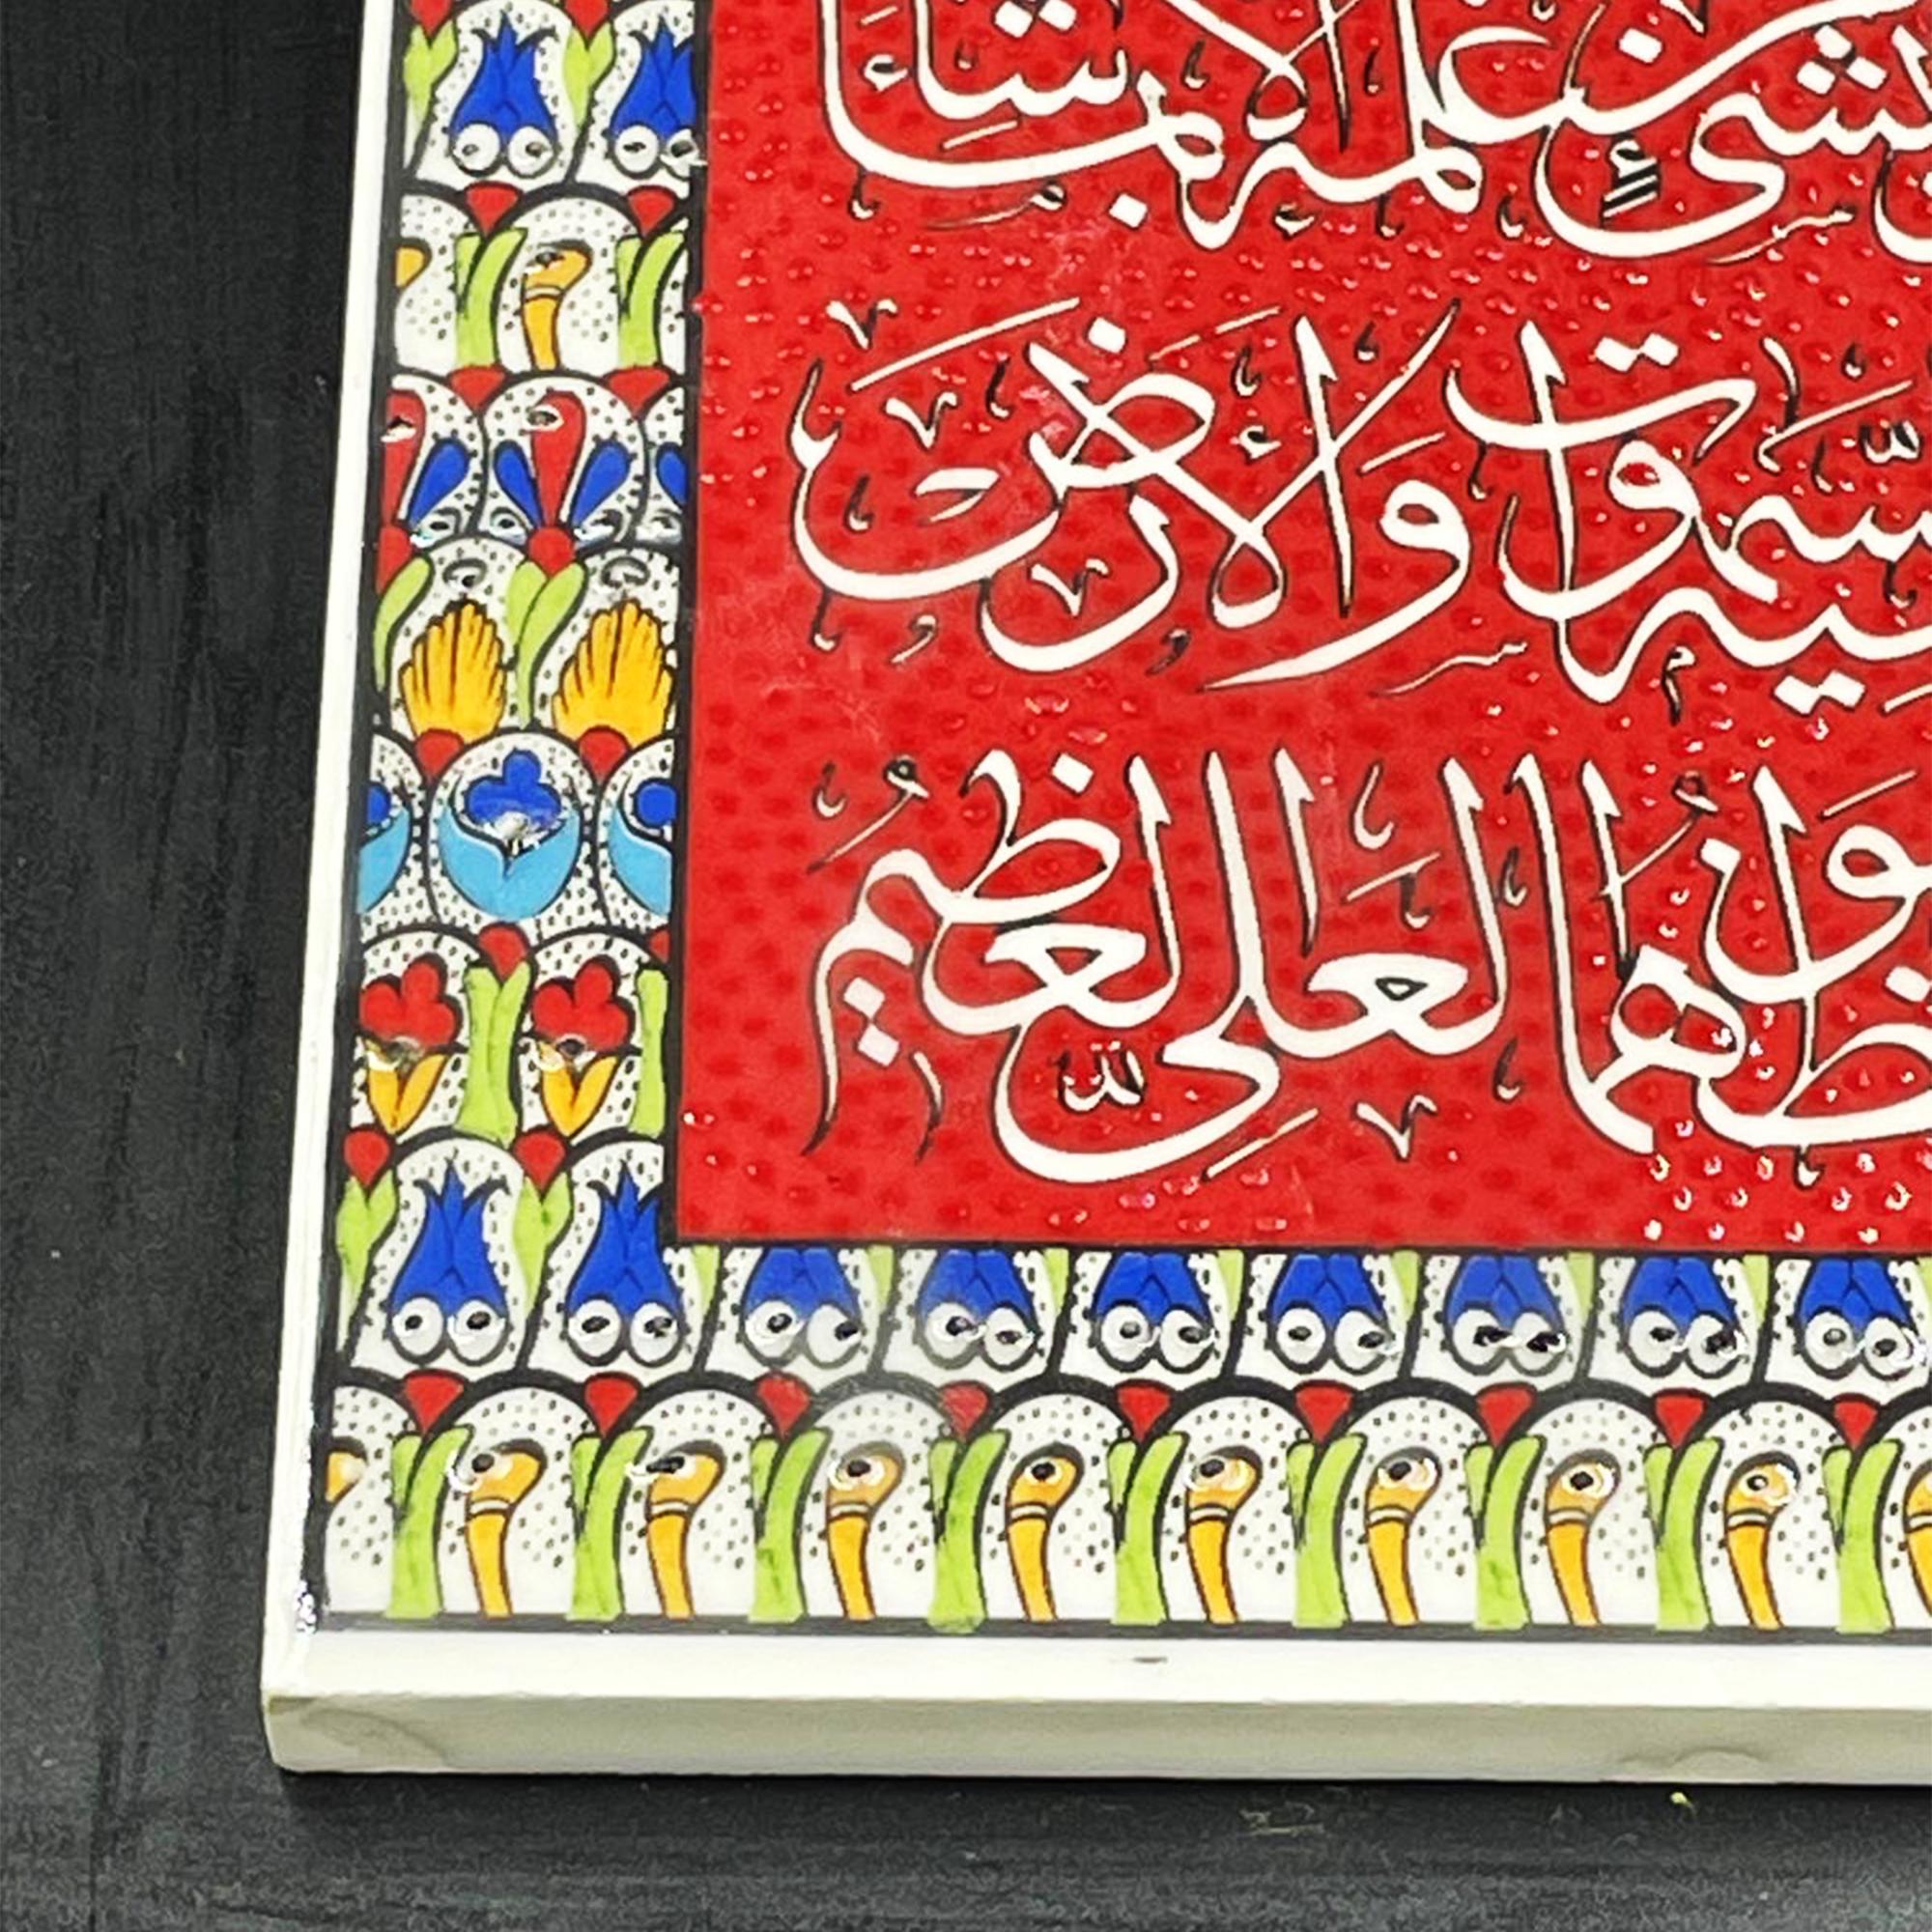 بِشَيْءٍ مِنْ عِلْمِهِ إِلَّا بِمَا شَاءَ
السَّمٰوَاتِ وَالْأَرْضَ
الْعَلِيُّ الْعَظِيمُ